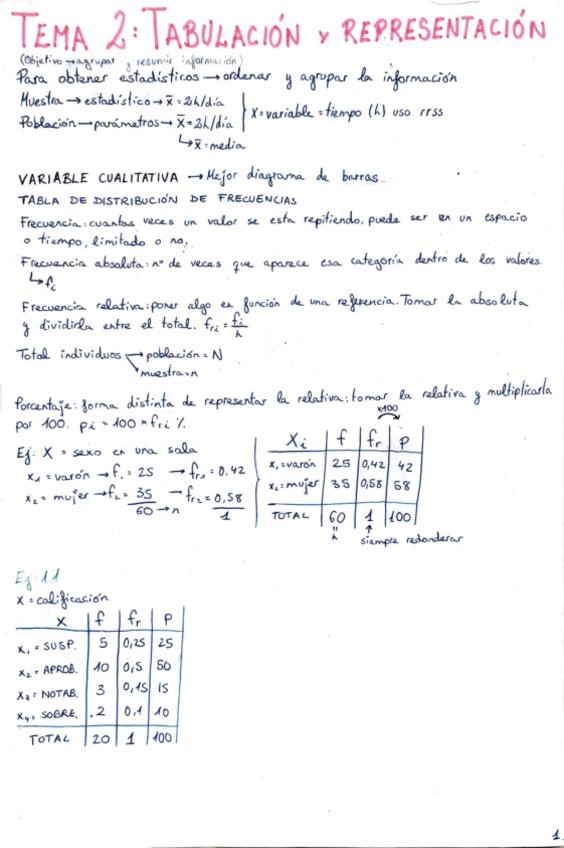 TEMA 2: TABULACIÓN Y REPRESENTACIÓN
(Objetivo → agrupar y resumir información)
Para obtener estadísticos → ordenar y agrupar la información
Muestra → estadístico → x̄ = 2h/día
Población → parámetros → x̄ = 2h/día
X = variable = tiempo (h) uso rrss
↳ x̄ = media
VARIABLE CUALITATIVA → Mejor diagrama de barras..
TABLA DE DISTRIBUCIÓN DE FRECUENCIAS
Frecuencia: cuantas veces un valor se esta repitiendo, puede ser en un espacio
o tiempo, limitado o no.
Frecuencia absoluta: nº de veces que aparece esa categoría dentro de los valores.
↳ fi
Frecuencia relativa: poner algo en función de una referencia. Tomar la absoluta
y dividirla entre el total. fri = fi/n
Total individuos → población = N
→ muestra = n
Porcentaje: forma distinta de representar la relativa: tomar la relativa y multiplicarla
por 100. pi = 100 × fri %
Ej: X = sexo en una sala
x1 = varón → f1 = 25 → fr1 = 0,42
x2 = mujer → f2 = 35 → fr2 = 0,58
60 → n 1
x100
Xi f fr P
x1 = varón 25 0,42 42
x2 = mujer 35 0,58 58
TOTAL 60 1 100
" ↑
n siempre redondear
Ej 1.1
X = calificación
X f fr P
x1 = SUSP. 5 0,25 25
x2 = APROB. 10 0,5 50
x3 = NOTAB. 3 0,15 15
x4 = SOBRE. 2 0,1 10
TOTAL 20 1 100
1